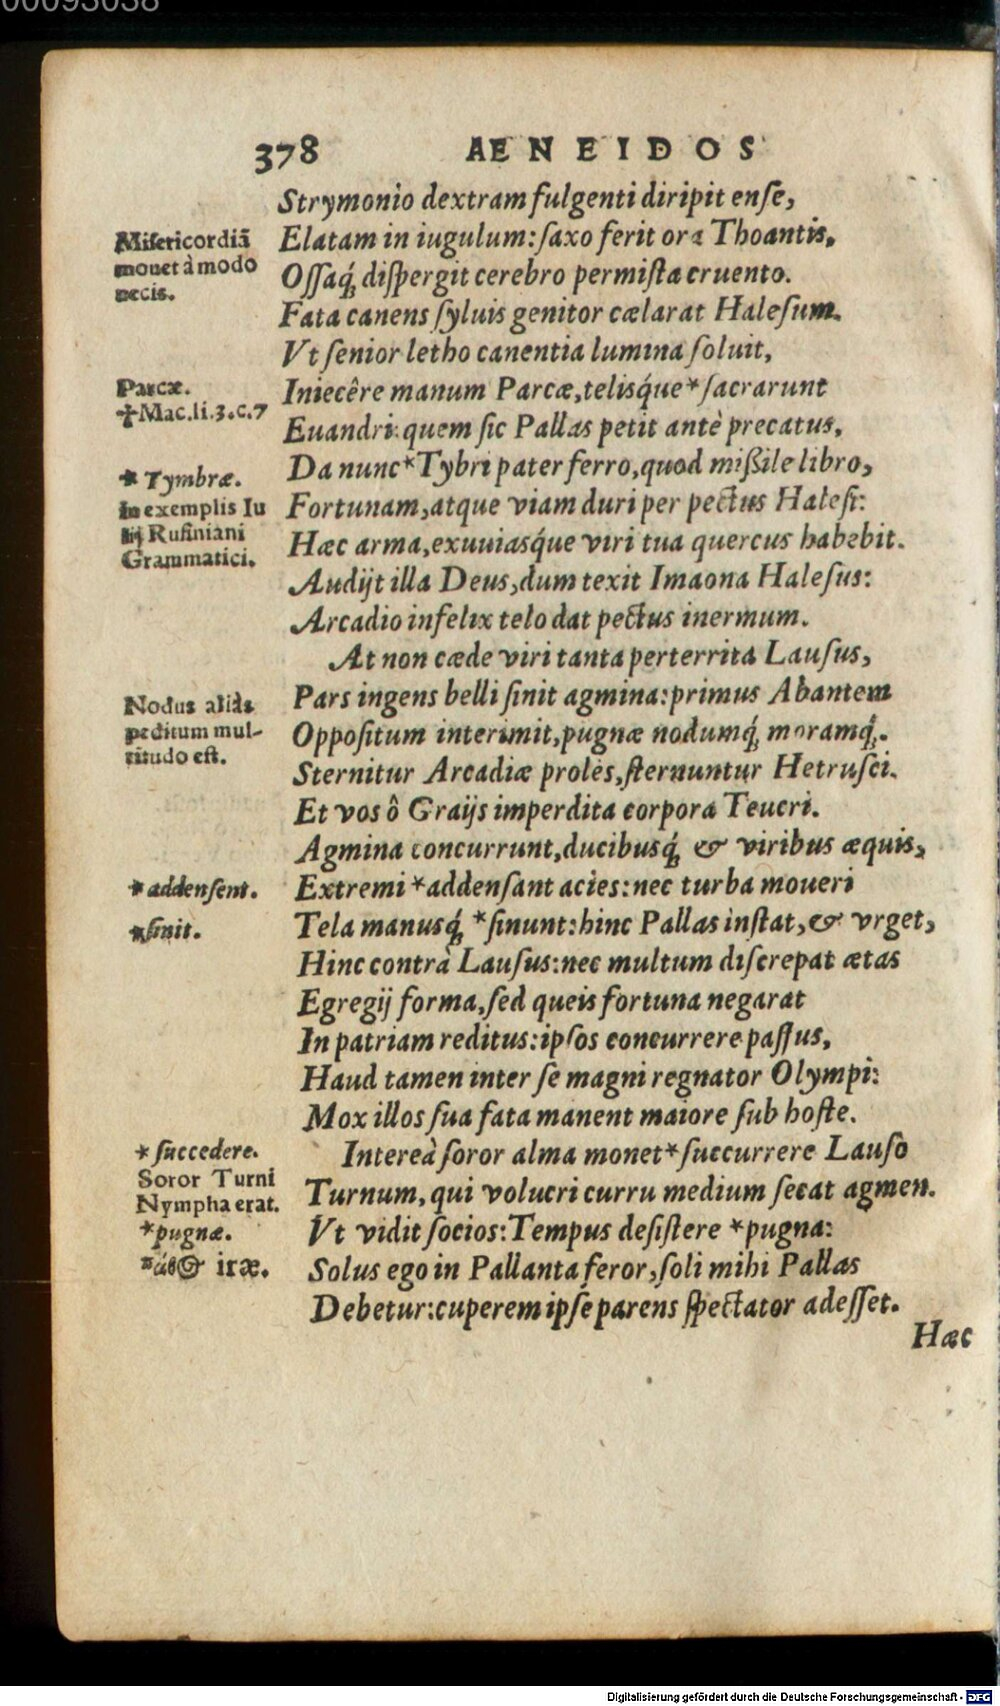 00093038
378 AENEIDOS
Strymonio dextram fulgenti diripit ense,
Elatam in iugulum: saxo ferit ora Thoantis,
Ossaq́; dispergit cerebro permista cruento.
Fata canens syluis genitor cælarat Halesum.
Vt senior letho canentia lumina soluit,
Iniecêre manum Parcæ, telisq́ue * sacrarunt
Euandri: quem sic Pallas petit antè precatus,
Da nunc * Tybri pater ferro, quod missile libro,
Fortunam, atque viam duri per pectus Halesi:
Hæc arma, exuuiasq́ue viri tua quercus habebit.
Audijt illa Deus, dum texit Imaona Halesus:
Arcadio infelix telo dat pectus inermum.
At non cæde viri tanta perterrita Lausus,
Pars ingens belli sinit agmina: primus Abantem
Oppositum interimit, pugnæ nodumq́; moramq́;.
Sternitur Arcadiæ proles, sternuntur Hetrusci.
Et vos ô Graijs imperdita corpora Teucri.
Agmina concurrunt, ducibusq́; & viribus æquis,
Extremi * addensant acies: nec turba moueri
Tela manusq́; * sinunt: hinc Pallas instat, & vrget,
Hinc contrà Lausus: nec multum discrepat ætas
Egregij forma, sed queis fortuna negarat
In patriam reditus: ipsos concurrere passus,
Haud tamen inter se magni regnator Olympi:
Mox illos sua fata manent maiore sub hoste.
Intereà soror alma monet * succurrere Lauso
Turnum, qui volucri curru medium secat agmen.
Vt vidit socios: Tempus desistere * pugna:
Solus ego in Pallanta feror, soli mihi Pallas
Debetur: cuperem ipse parens spectator adesset.
Hæc
Misericordiã
mouet à modo
necis.
Parcæ.
☩ Mac.li.3.c.7
* Tymbræ.
in exemplis Iu
lij Rufiniani
Grammatici.
Nodus aliàs
peditum mul-
titudo est.
* addensent.
* sinit.
* succedere.
Soror Turni
Nympha erat.
* pugnæ.
iræ.
Digitalisierung gefördert durch die Deutsche Forschungsgemeinschaft - DFG